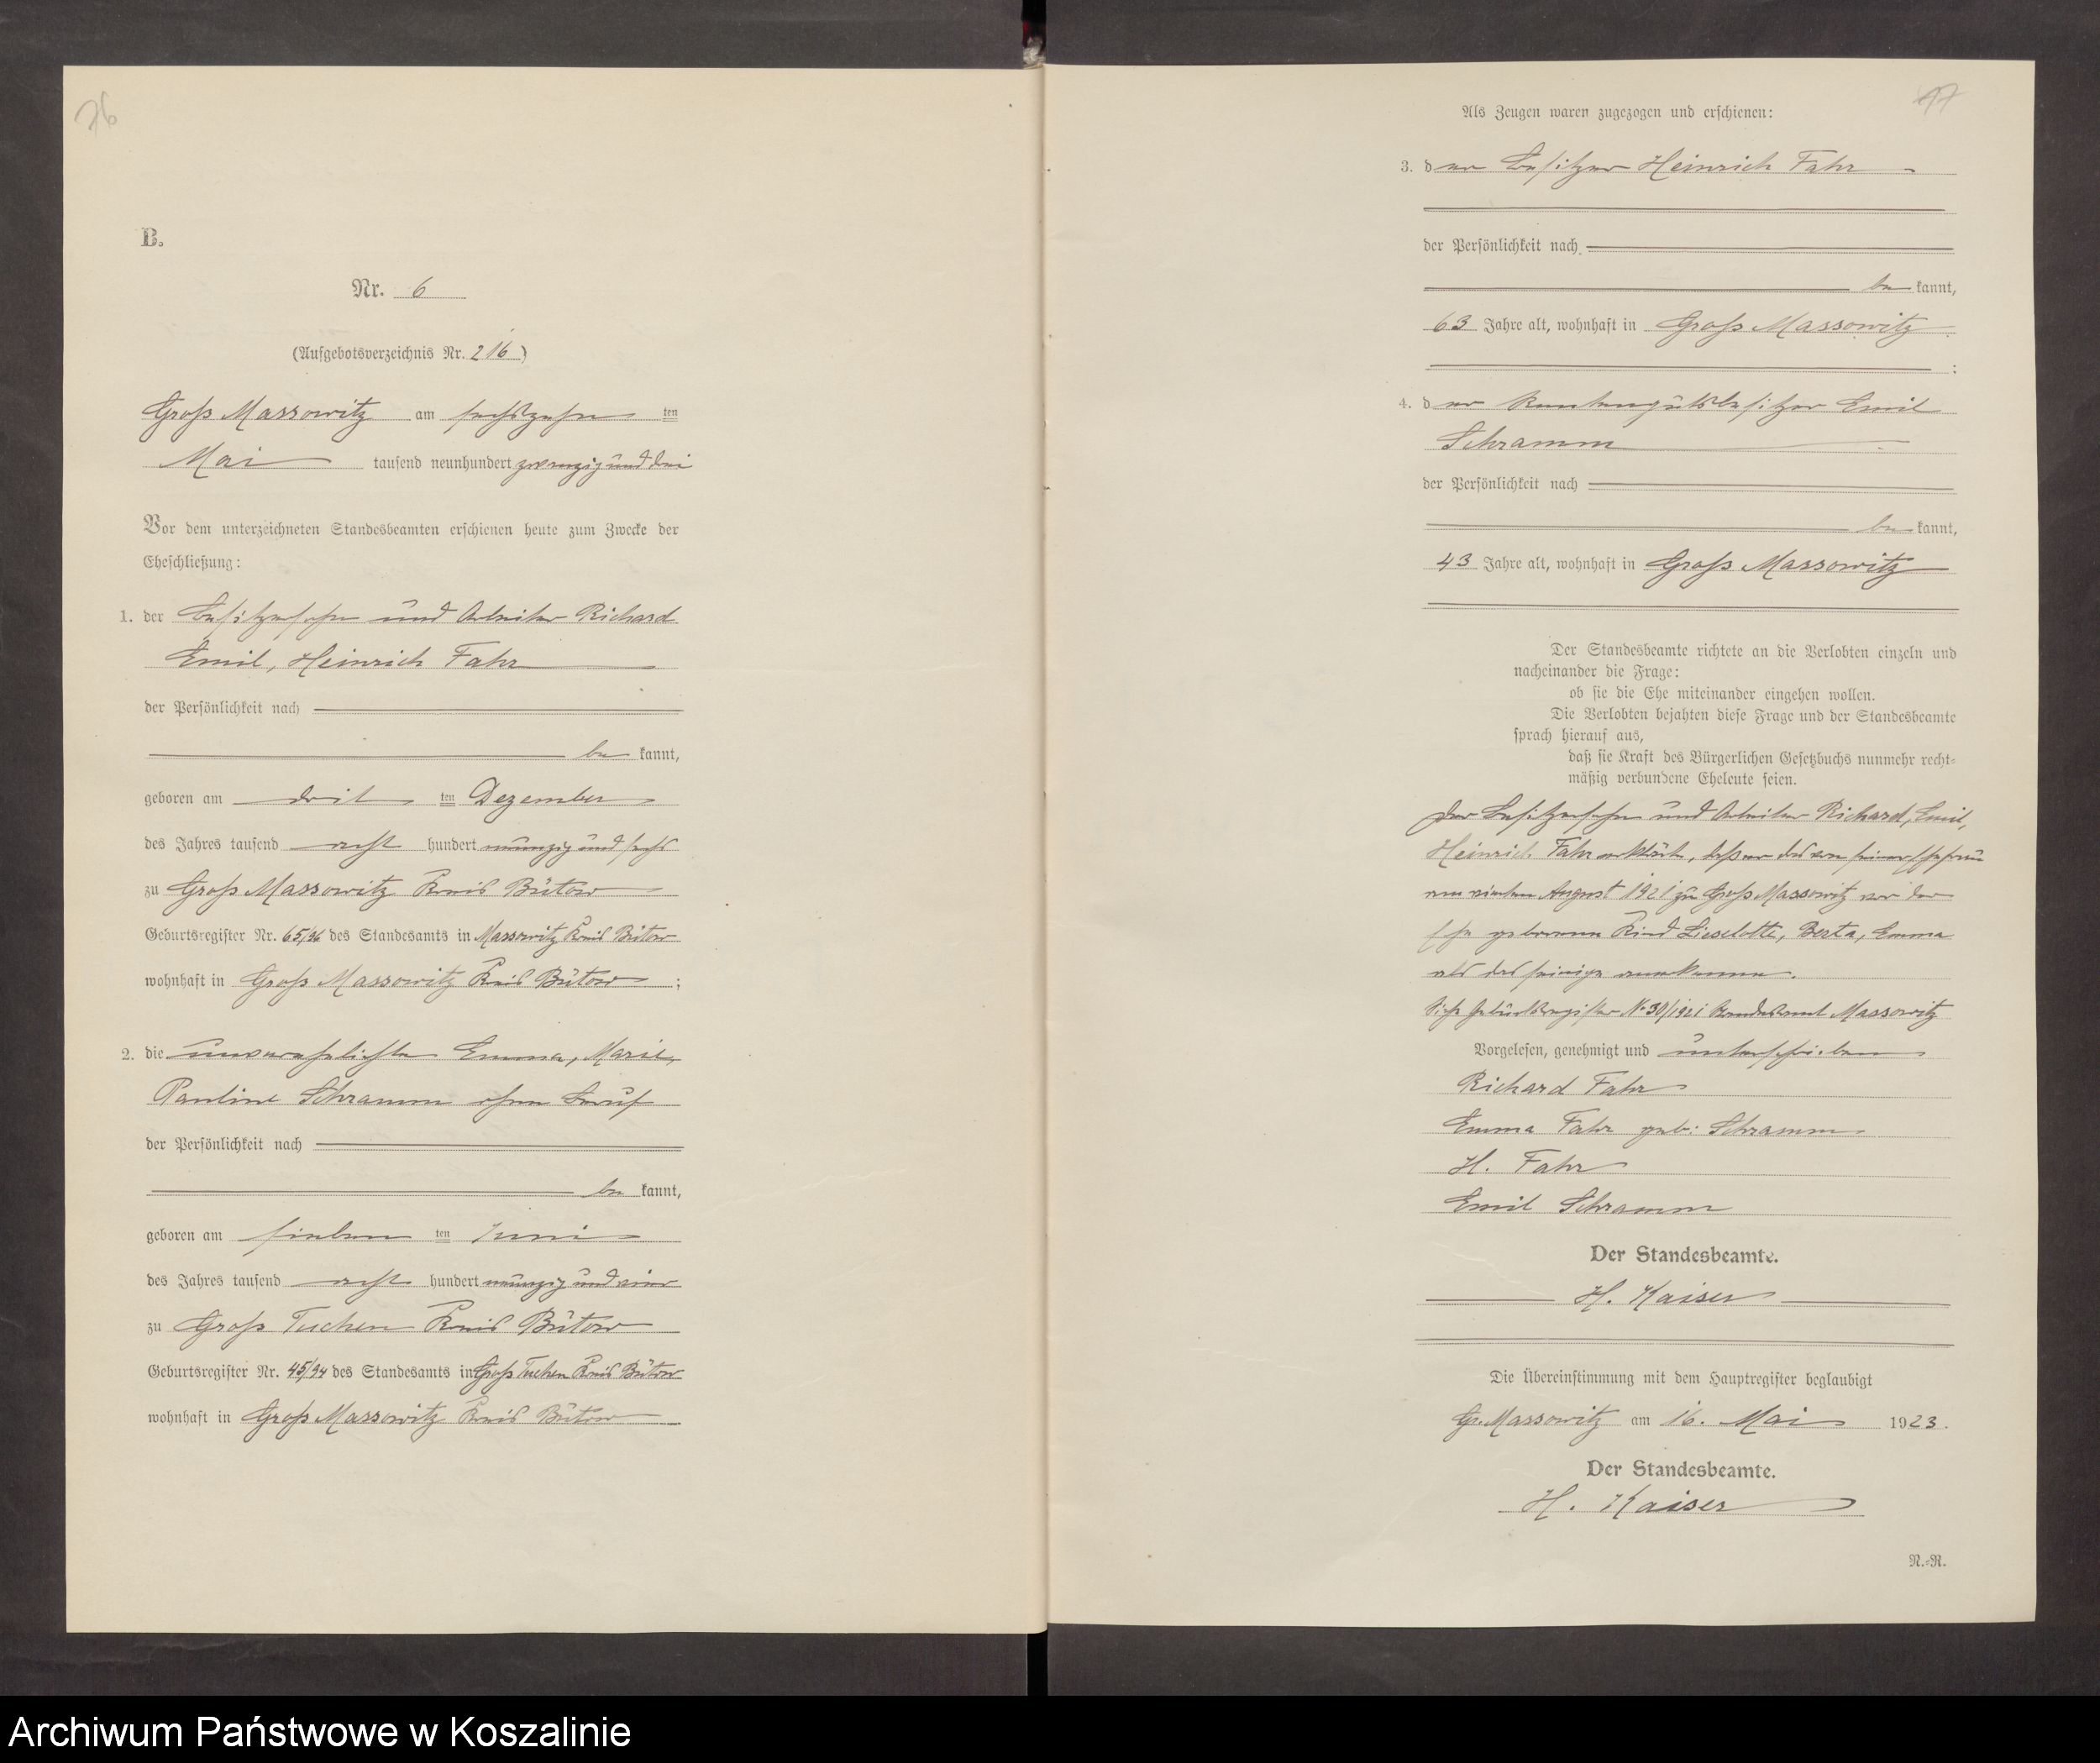 76
B.
Nr. 6
(Aufgebotsverzeichnis Nr. 216)
Groß Massowitz am sechszehn ten
Mai tausend neunhundert zwanzig und drei
Vor dem unterzeichneten Standesbeamten erschienen heute zum Zwecke der
Eheschließung:
1. der Besitzersohn und Arbeiter Richard
Emil, Heinrich Fahr
der Persönlichkeit nach
be kannt,
geboren am drit ten Dezember
des Jahres tausend acht hundert neunzig und sechs
zu Groß Massowitz Kreis Bütow
Geburtsregister Nr. 65/96 des Standesamts in Massowitz Kreis Bütow
wohnhaft in Groß Massowitz Kreis Bütow ;
2. die unverehelichte Emma, Marie,
Pauline Schramm ohne Beruf
der Persönlichkeit nach
be kannt,
geboren am sieben ten Juni
des Jahres tausend acht hundert neunzig und vier
zu Groß Tuchen Kreis Bütow
Geburtsregister Nr. 45/94 des Standesamts in Groß Tuchen Kreis Bütow
wohnhaft in Groß Massowitz Kreis Bütow
77
Als Zeugen waren zugezogen und erschienen:
3. der Besitzer Heinrich Fahr
der Persönlichkeit nach
be kannt,
63 Jahre alt, wohnhaft in Groß Massowitz
;
4. der Rentengutsbesitzer Emil
Schramm
der Persönlichkeit nach
be kannt,
43 Jahre alt, wohnhaft in Groß Massowitz
Der Standesbeamte richtete an die Verlobten einzeln und
nacheinander die Frage:
ob sie die Ehe miteinander eingehen wollen.
Die Verlobten bejahten diese Frage und der Standesbeamte
sprach hierauf aus,
daß sie Kraft des Bürgerlichen Gesetzbuchs nunmehr recht-
mäßig verbundene Eheleute seien.
Der Besitzersohn und Arbeiter Richard, Emil,
Heinrich Fahr erklärte, daß er das von seiner Ehefrau
am vierten August 1921 zu Groß Massowitz vor der
Ehe geborene Kind Lieselotte, Berta, Emma
als das seinige anerkenne.
Siehe Geburtsregister No 30/1921 Standesamt Massowitz
Vorgelesen, genehmigt und unterschrieben
Richard Fahr
Emma Fahr geb: Schramm
H. Fahr
Emil Schramm
Der Standesbeamte.
H. Kaiser
Die Übereinstimmung mit dem Hauptregister beglaubigt
Gr. Massowitz am 16. Mai 1923.
Der Standesbeamte.
H. Kaiser
N.-R.
Archiwum Państwowe w Koszalinie